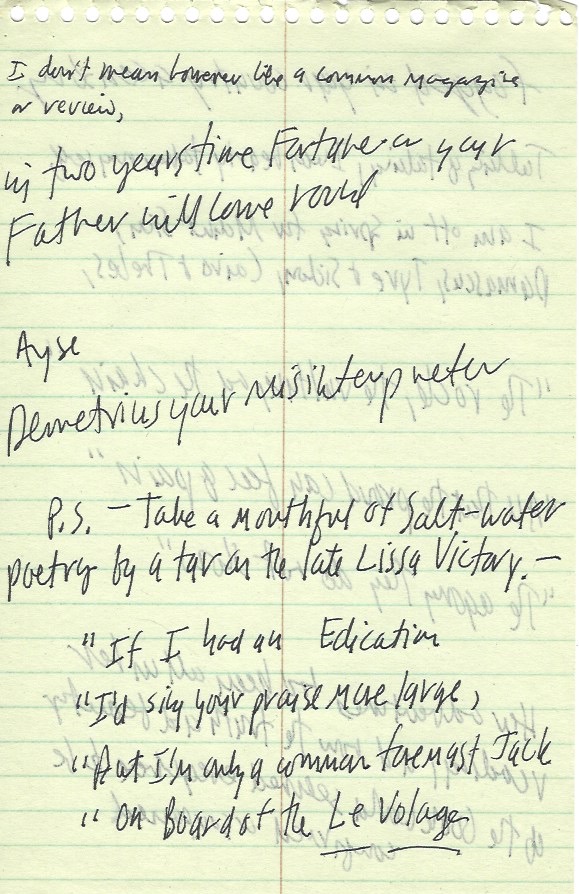 I don't mean however like a common magazine
or review,
in two years time Fortune or your
Father will come round
Ayse
Demetrius your misinterpreter
P.S. – Take a mouthful of Salt-water
poetry by a tar on the late Lissa Victory. –
"If I had an Edication
"I'd sing your praise more large,
"But I'm only a common foremast Jack
"On Board of the Le Volage